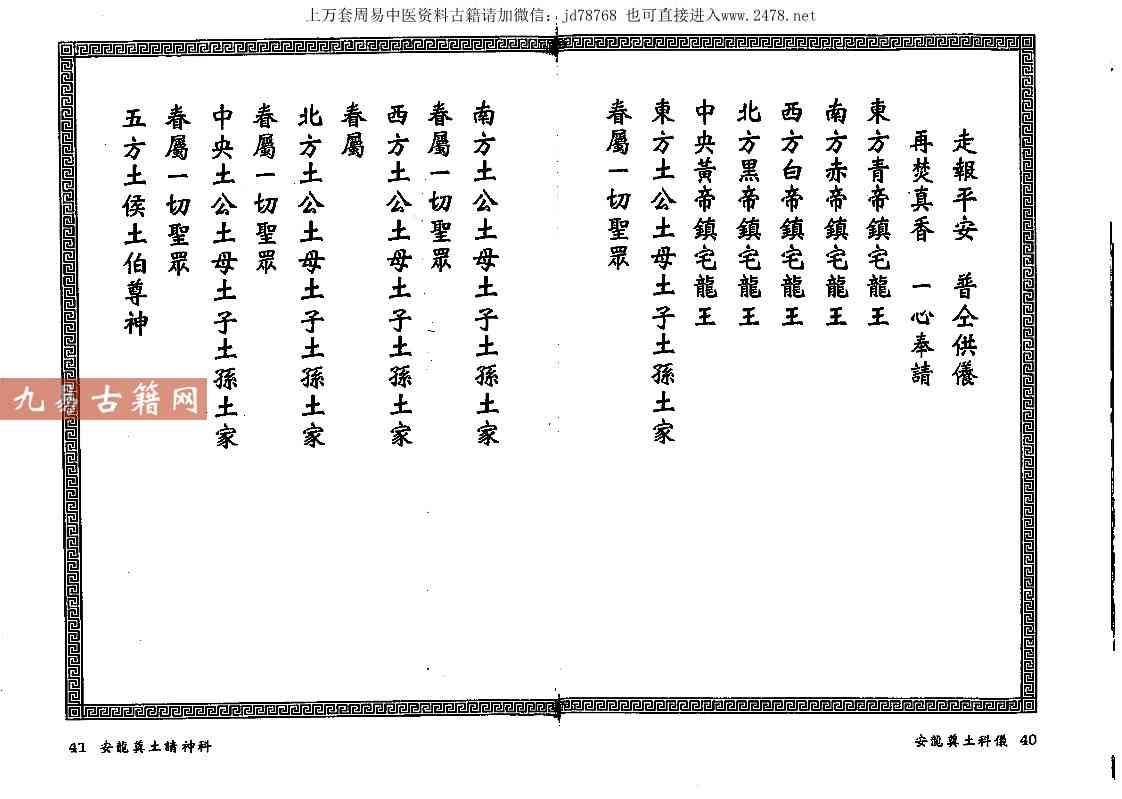 上万套周易中医资料古籍请加微信：jd78768 也可直接进入www.2478.net
走報平安 普仝供儀
再焚真香 一心奉請
東方青帝鎮宅龍王
南方赤帝鎮宅龍王
西方白帝鎮宅龍王
北方黑帝鎮宅龍王
中央黃帝鎮宅龍王
東方土公土母土子土孫土家
眷屬一切聖眾
南方土公土母土子土孫土家
眷屬一切聖眾
西方土公土母土子土孫土家
眷屬
北方土公土母土子土孫土家
眷屬一切聖眾
中央土公土母土子土孫土家
眷屬一切聖眾
五方土侯土伯尊神
九易古籍网
安龍奠土科儀 40
41 安龍奠土請神科